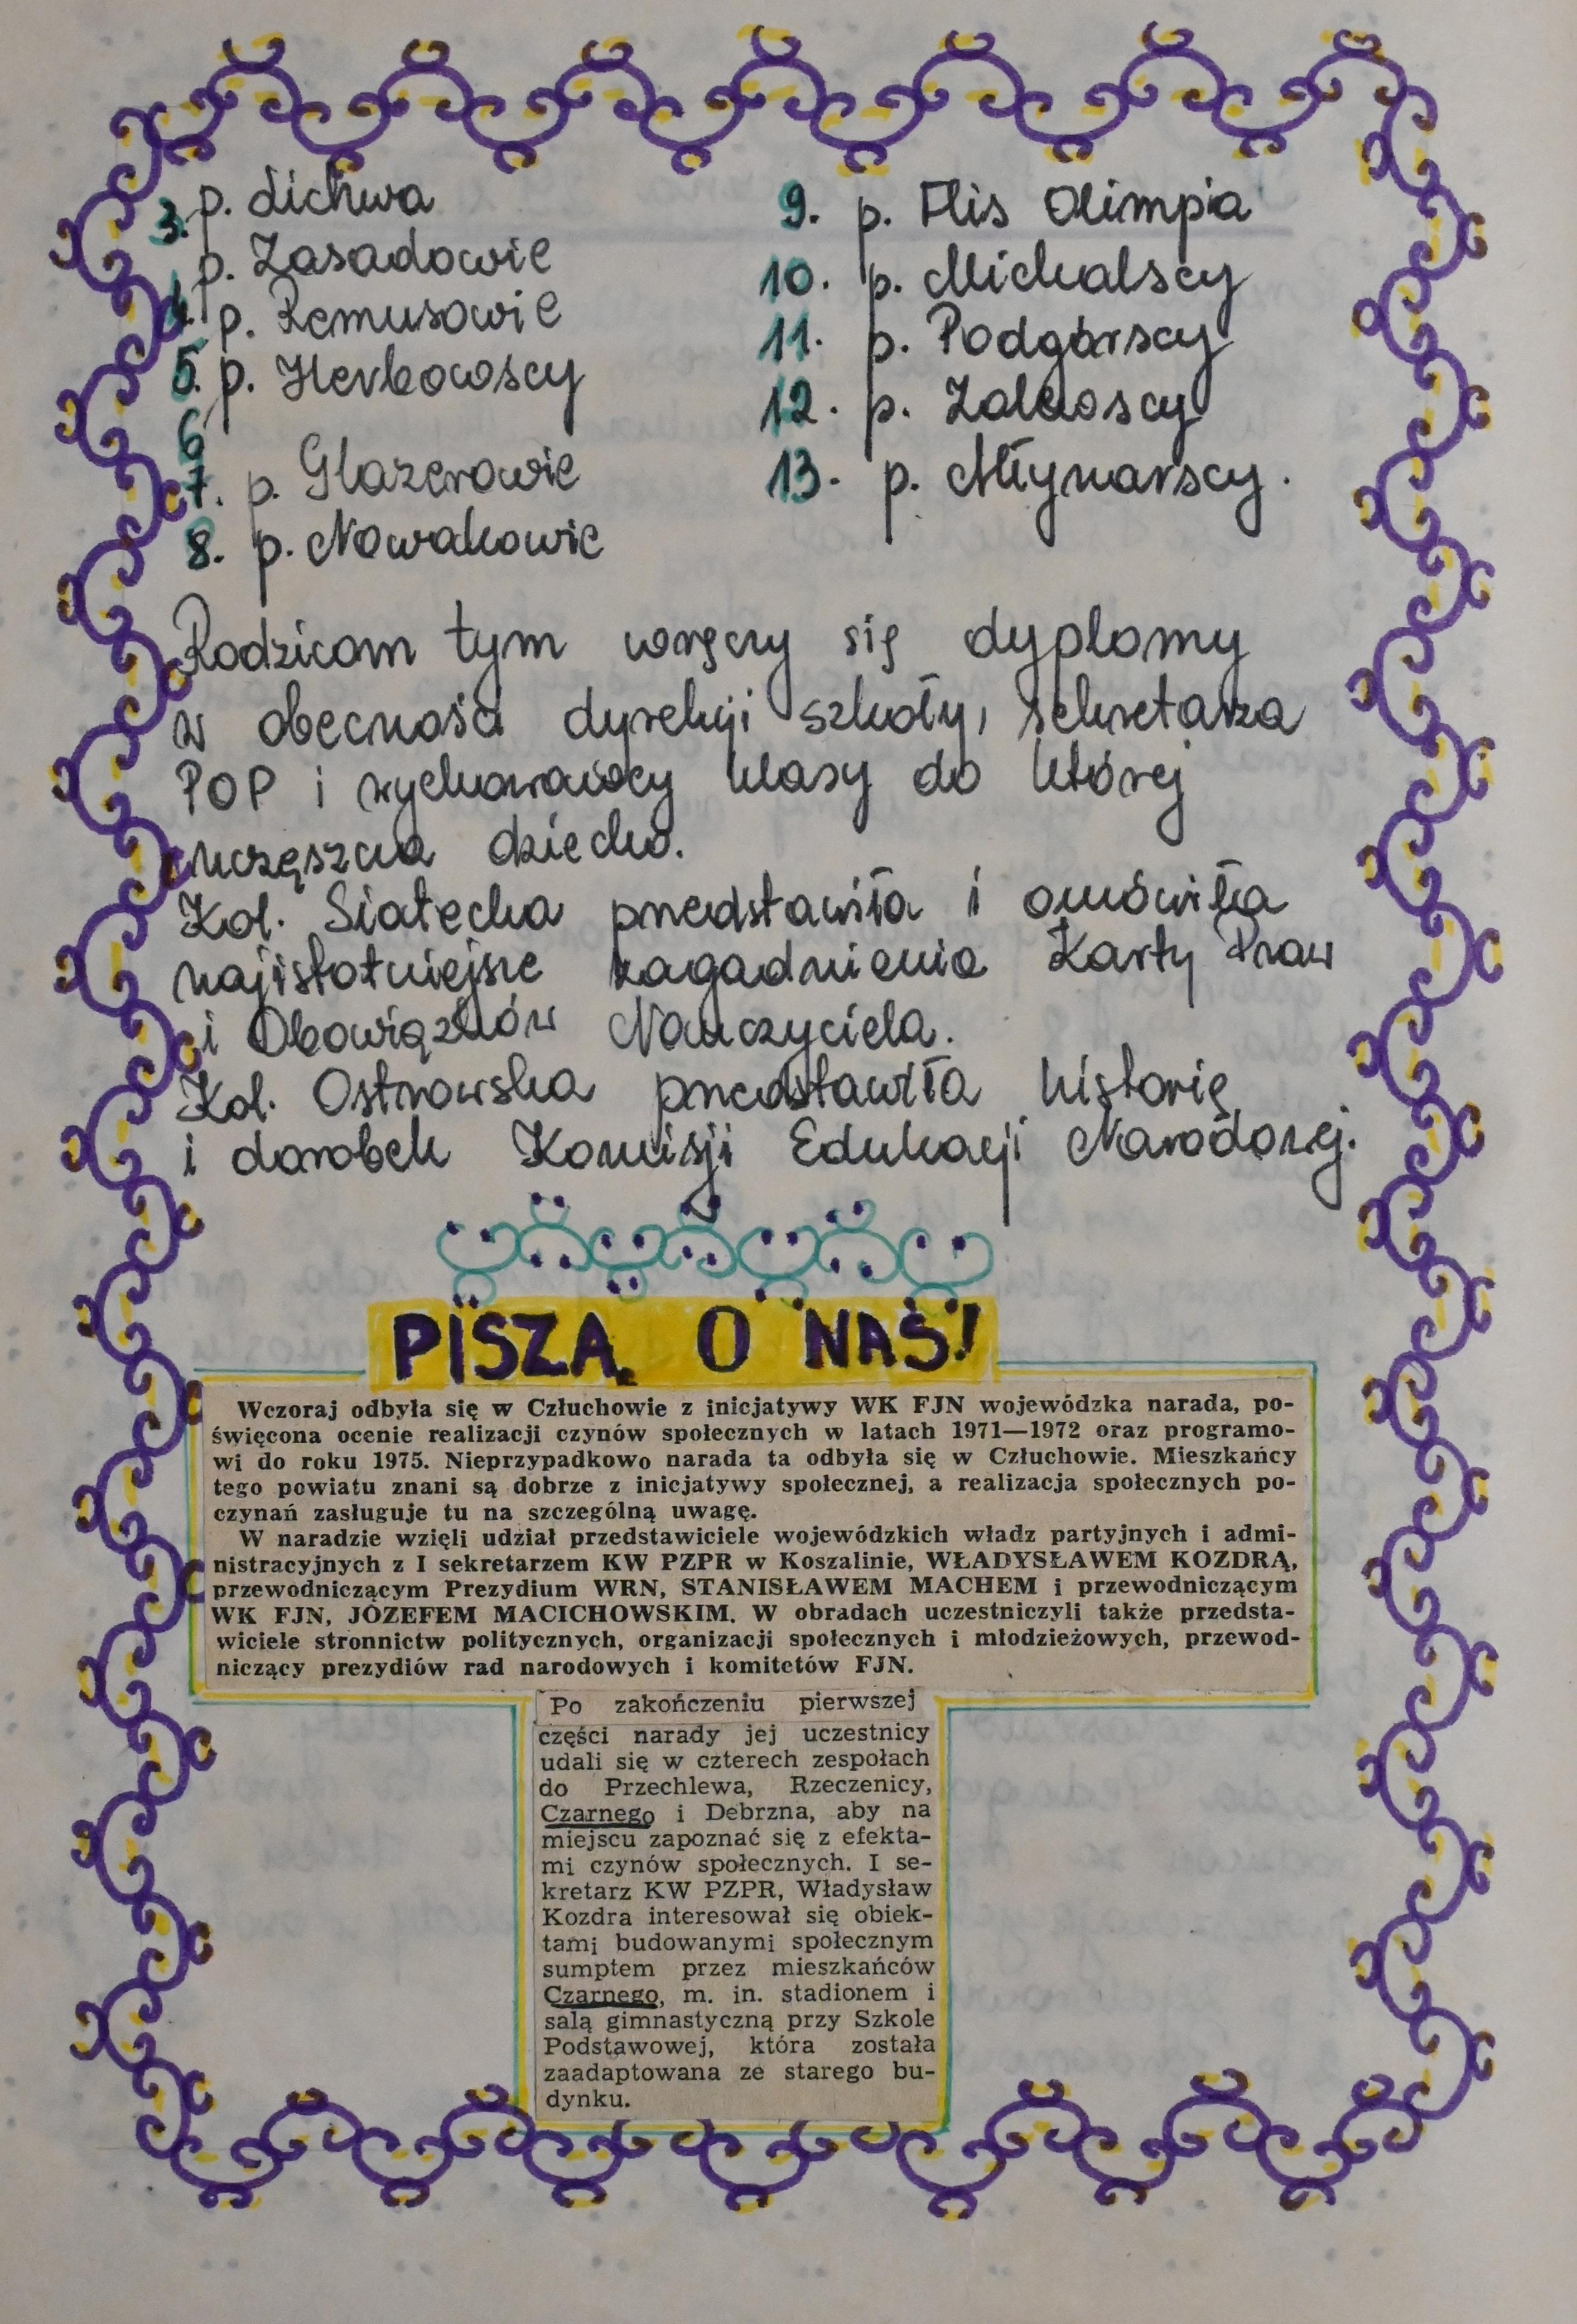 3. p. Lichwa
p. Zasadowie
4. p. Remusowie
5. p. Herbowscy
6
7. p. Glazerowie
8. p. Nowakowie
9. p. Flis Olimpia
10. p. Michalscy
11. p. Podgórscy
12. p. Zalewscy
13. p. Młynarscy.
Rodzicom tym wręczy się dyplomy
w obecności dyrekcji szkoły, sekretarza
POP i wychowawcy klasy do której
uczęszcza dziecko.
Kol. Siatecka przedstawiła i omówiła
najistotniejsze zagadnienia Karty Praw
i Obowiązków Nauczyciela.
Kol. Ostrowska przedstawiła historię
i dorobek Komisji Edukacji Narodowej.
PISZĄ O NAS!
Wczoraj odbyła się w Człuchowie z inicjatywy WK FJN wojewódzka narada, po-
święcona ocenie realizacji czynów społecznych w latach 1971—1972 oraz programo-
wi do roku 1975. Nieprzypadkowo narada ta odbyła się w Człuchowie. Mieszkańcy
tego powiatu znani są dobrze z inicjatywy społecznej, a realizacja społecznych po-
czynań zasługuje tu na szczególną uwagę.
W naradzie wzięli udział przedstawiciele wojewódzkich władz partyjnych i admi-
nistracyjnych z I sekretarzem KW PZPR w Koszalinie, WŁADYSŁAWEM KOZDRĄ,
przewodniczącym Prezydium WRN, STANISŁAWEM MACHEM i przewodniczącym
WK FJN, JÓZEFEM MACICHOWSKIM. W obradach uczestniczyli także przedsta-
wiciele stronnictw politycznych, organizacji społecznych i młodzieżowych, przewod-
niczący prezydiów rad narodowych i komitetów FJN.
Po zakończeniu pierwszej
części narady jej uczestnicy
udali się w czterech zespołach
do Przechlewa, Rzeczenicy,
Czarnego i Debrzna, aby na
miejscu zapoznać się z efekta-
mi czynów społecznych. I se-
kretarz KW PZPR, Władysław
Kozdra interesował się obiek-
tami budowanymi społecznym
sumptem przez mieszkańców
Czarnego, m. in. stadionem i
salą gimnastyczną przy Szkole
Podstawowej, która została
zaadaptowana ze starego bu-
dynku.